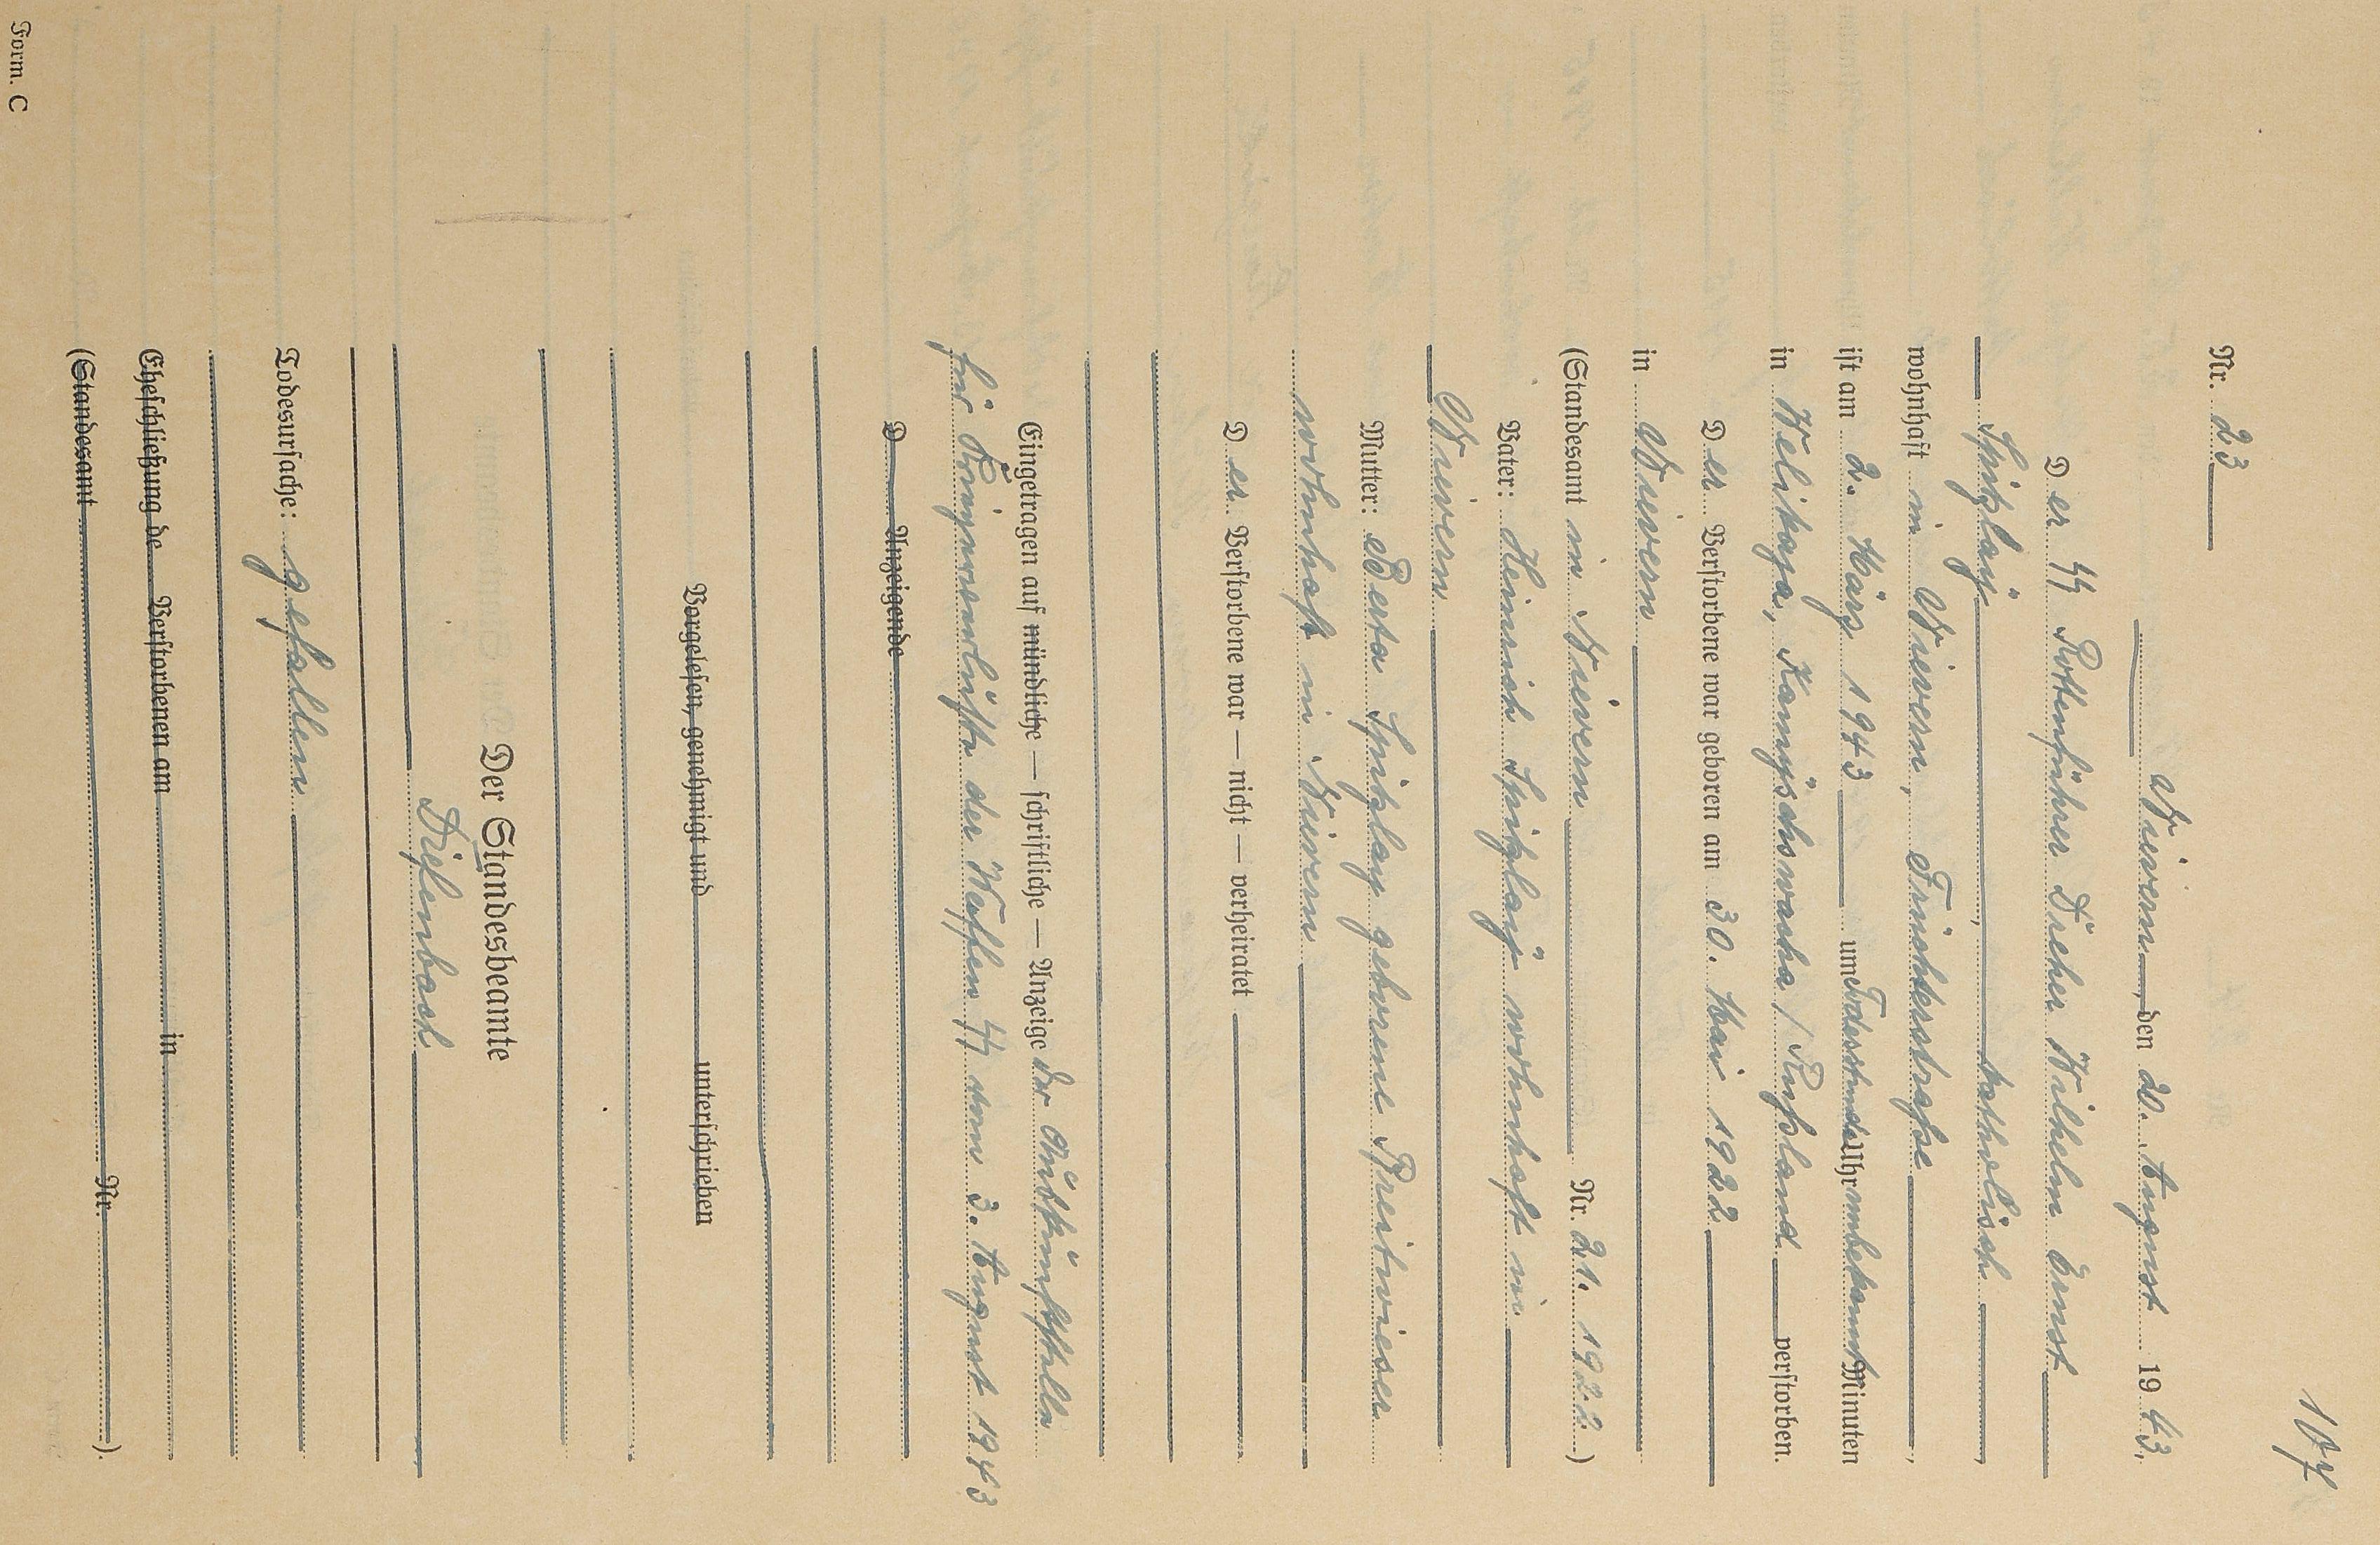 107
Nr. 23
Nievern, den 20. August 1943.
Der SS Rottenführer Dreher Wilhelm Ernst
Spitzlay, katholisch
wohnhaft in Nievern, Friedhofstraße
ist am 2. März 1943 um Todesstunde Uhr unbekannt Minuten
in Welikaja, Kamyschowacha / Rußland verstorben.
Der Verstorbene war geboren am 30. Mai 1922
in Nievern
(Standesamt in Nievern Nr. 21. 1922)
Vater: Heinrich Spitzlay wohnhaft in
Nievern
Mutter: Berta Spitzlay geborene Breitwieser
wohnhaft in Nievern
Der Verstorbene war — nicht — verheiratet
Eingetragen auf mündliche — schriftliche — Anzeige der Auskunftstelle
für Kriegsverluste der Waffen SS vom 3. August 1943
D Anzeigende
Vorgelesen, genehmigt und unterschrieben
Der Standesbeamte
Diefenbach
Todesursache: gefallen
Eheschließung de Verstorbenen am in
(Standesamt Nr. ).
Form. C